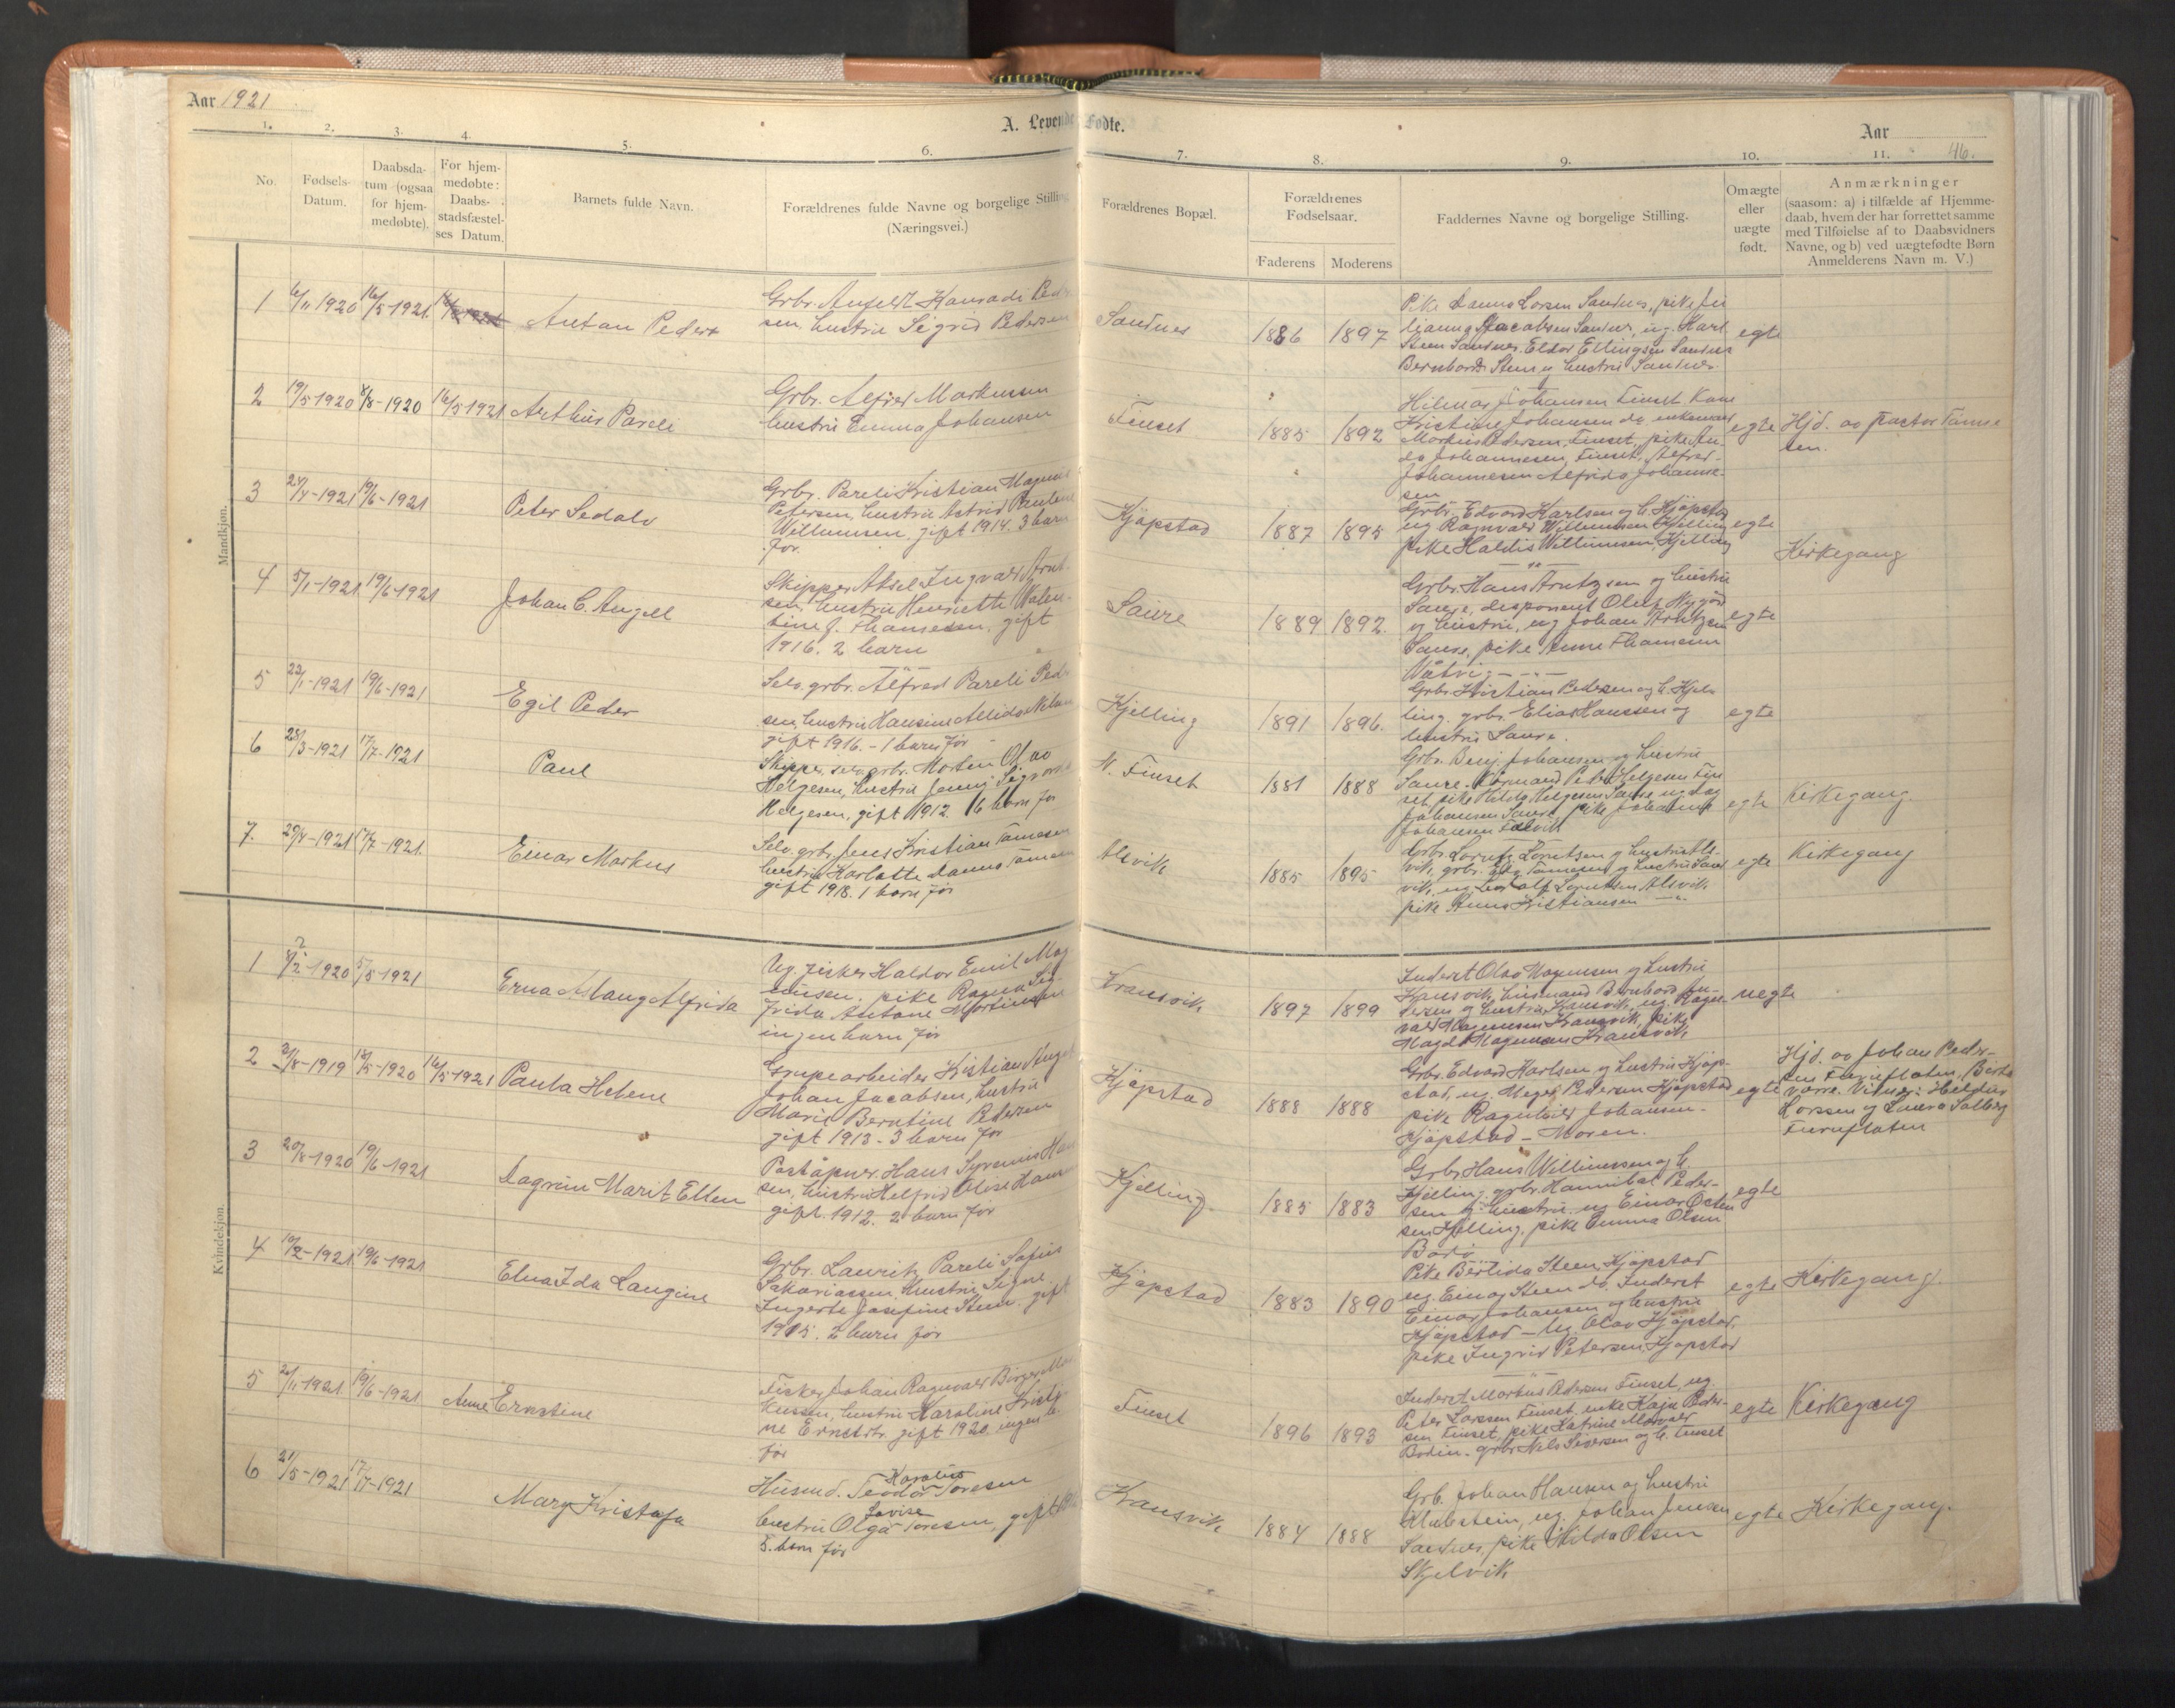 Aar 1921
A. Levende Fødte.
Aar
46.
1. 2. 3. 4. 5. 6. 7. 8. 9. 10. 11.
No.
Fødsels-
Datum.
Daabsda-
tum (ogsaa
for hjem-
medøbte).
For hjem-
medøbte:
Daabs-
stadsfæstel-
ses Datum.
Barnets fulde Navn.
Forældrenes fulde Navne og borgelige Stilling
(Næringsvei.)
Forældrenes Bopæl.
Forældrenes
Fødselsaar.
Faderens Moderens
Faddernes Navne og borgelige Stilling.
Om ægte
eller
uægte
født.
Anmærkninger
(saasom: a) i tilfælde af Hjemme-
daab, hvem der har forrettet samme
med Tilføielse af to Daabsvidners
Navne, og b) ved uægtefødte Børn
Anmelderens Navn m. V.)
Mandkjøn.
1 6/11 1920 16/5-1921.
Anton Peder
Grbr. Angeldt Konradi Peder
sen, hustru Sigrid Pedersen
Sandnes
1886 1897
Pike Danna Larsen Sandnes, pike Ju
lianna Jacobsen Sandnes, ug. Karl
Steen Sandnes, Eldor Ellingsen Sandnes
Bernhard Steen og hustru Sandnes.
egte
2 19/5 1920 8/8-1920 16/5 1921
Arthur Pareli
Grbr. Alfred Markussen
hustru Emma Johansen
Finset
1885 1892
Hilmar Johansen Finset
Kristine Johansen do, enkemand
Markus Pedersen, Finset, pike
Johannesen, Finset, Alfred
Johannesen Alfrida Johanne-
sen
egte
Hjd. av pastor Tønne
sen.
3 24/4-1921 19/6-1921
Peter Sedolv
Grbr. Pareli Kristian Magnus
Petersen, hustru Astrid Paulene
Willumsen, gift 1914. 3 barn
før.
Kjøpstad
1887 1895
Grbr. Edvard Karlsen og h. Kjøpstad
ug Ragnvald Willumsen Kjelling
pike Haldis Willumsen Kjelling
egte
Kirkegang
4 5/1-1921 19/6-1921
Johan C. Angell
Skipper Aksel Ingvald Arnt-
sen, hustru Henriette Valen-
tine f. Thomesen, gift
1916. 2 barn
Saure
1889 1892.
Grbr. Hans Arntzsen og hustru
Saure, disponent Oluf Nygård
og hustru, ug Johan Arntzsen
Saure, pike Anne Thomesen
Våtvig
egte
5 22/1-1921 19/6-1921
Egil Peder
Selv. grbr. Alfred Pareli Peder
sen, hustru Hansine Allida Nilsen
gift 1916. - 1 barn før
Kjelling
1891 1896.
Grbr. Kristian Pedersen og h. Kjel-
ling. grbr. Elias Hanssen og
hustru Saure.
egte
6 28/3-1921 17/7-1921
Paul
Skipper, selv. grbr. Morten Olav
Helgesen, hustru Jenny
Helgesen, gift 1912. 6 barn før
N. Finset
1881 1888
Grbr. Benj. Johansen og hustru
Saure. Kårmand Peder Helgesen Fin
set, pike Hilda Helgesen Saure, ug Dag
Johansen Saure, pike Johanne
Johansen
egte
Kirkegang.
7. 29/4-1921 17/7-1921.
Einar Markus
Selv. grbr. Jens Kristian Tønnesen
hustru Karlotte Danna Tønnesen
gift 1918. 1 barn før
Alsvik
1885 1895
Grbr. Lorntz Lorntsen og hustru Als-
vik, grbr. Tønnesen og hustru Sand
vik, ug. Leif Lorntsen Alsvik
pike Anna Kristiansen
egte
Kirkegang
Kvindekjøn.
1 4/2-1920 5/5-1921
Erna Aslaug Alfrida
Ug. fisker Haldor Emil Mag
nussen, pike Ragna Sig-
frida Antone Martinsen
ingen barn før
Kransvik
1897 1899
Inderst Olav Magnussen og hustru
Kransvik, husmand Bernhard An-
dersen og hustru Kransvik, ug. Ragn-
vald Magnussen Kransvik, pike
Magda Magnussen Kransvik
uegte
2 31/8-1919 18/5-1920 16/5-1921
Paula Helene
Grupearbeider Kristian August
Johan Jacobsen, hustru
Marie Berntine Pedersen
gift 1913 - 3 barn før
Kjøpstad
1888 1888
Grbr. Edvard Karlsen og hustru Kjøp-
stad, ug. Meyer Pedersen Kjøpstad
pike Ragnhild Johansen -
Kjøpstad - Moren.
egte
Hjd. av Johan Peder-
sen Furuflaten, Birta
varre. Vitner: Heldur
Larssen og Laura Solberg
Furuflaten
3 20/8-1920 19/6-1921
Dagrun Marit Ellen
Poståpner. Hans Syrenius Han
sen, hustru Helfrid Oline Hansen
gift. 1912. 2 barn før
Kjelling
1885 1883
Grbr Hans Willumsen og h.
Kjelling, grbr. Hannibal Peder-
sen og hustru. ug Einar Osten
sen Kjelling, pike Emma Olsen
Bodø
egte
4 10/2-1921 19/6-1921
Elna Ida Laugine
Grbr. Lauritz Pareli Sofus
Sakariassen, hustru Signe
Ingerte Josefine Steen. gift
1915. 2 barn før
Kjøpstad
1883 1890
Pike Bertida Steen, Kjøpstad
ug. Einar Steen do. Inderst
Einar Johansen og hustru
Kjøpstad - ug Olav Kjøpstad,
pike Ingrid Petersen Kjøpstad
egte
Kirkegang.
5 2/11-1921 19/6-1921
Anne Ernstine
Fisker Johan Ragnvald Birger Mar
kussen, hustru Karoline Kristi-
ne Ernstdtr. gift 1920, ingen b.
før
Finset
1896 1893
Inderst Markus Pedersen Finset, ug.
Peter Larssen Finset, enke Kaja Peder-
sen Finset, pike Katrine Morvær
Bodin. grbr. Nils Siversen og h. Finset
egte
Kirkegang
6 21/5-1921 17/7-1921
Mary Kristofa
Karolius
Husmd. Teodor Toresen
Lovise
hustru Olga Toresen, gift
5. barn før
Kransvik
1884 1888
Grb. Johan Hansen og hustru
Klubstein, ug. Johan Jensen
Sandnes, pike Hilda Olsen
Skjelvik
egte
Kirkegang.